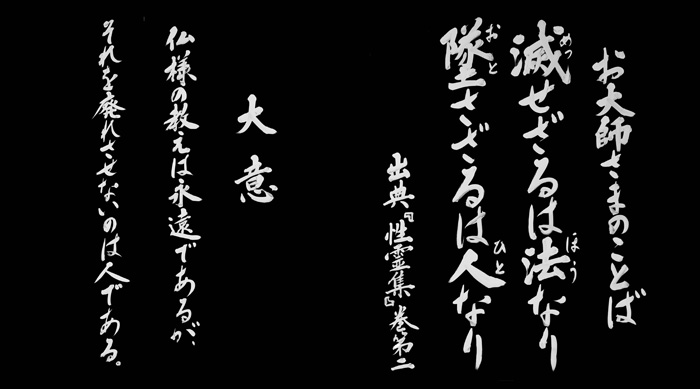 お大師さまのことば
滅せざるは法なり
墜さざるは人なり
出典『性霊集』巻第二
大意
仏様の教えは永遠であるが、
それを廃れさせないのは人である。